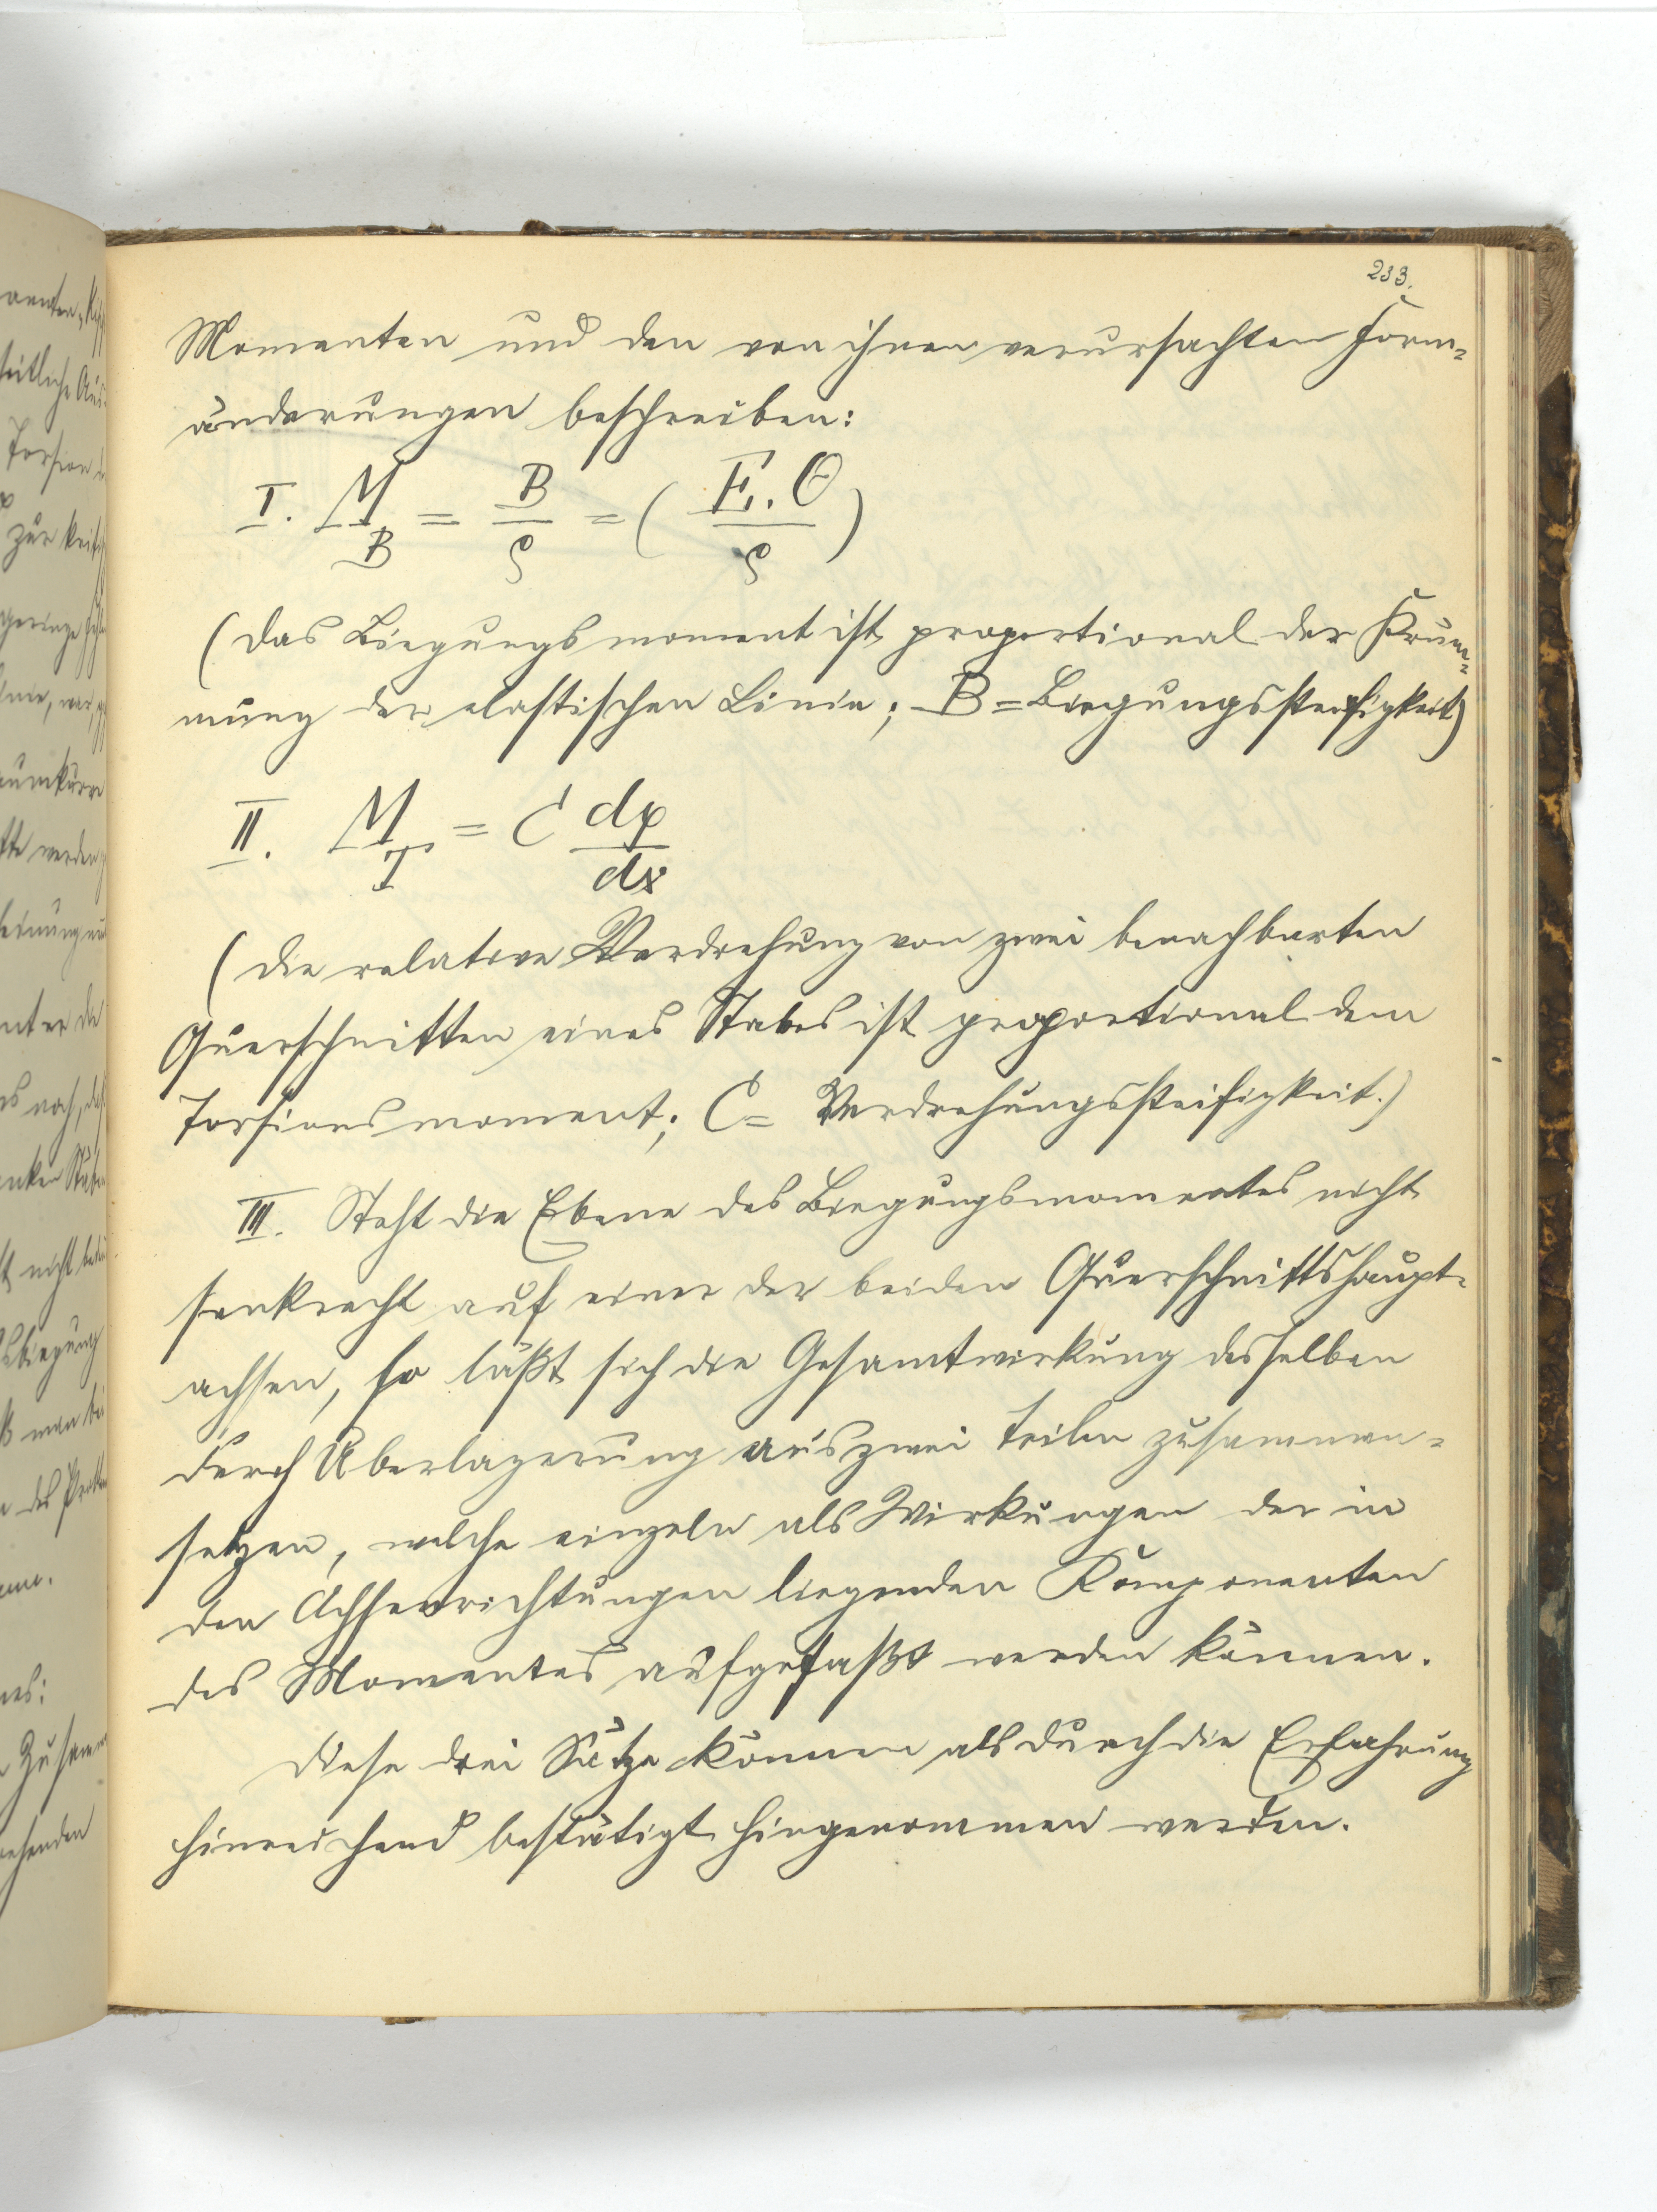 233.
Momenten und den von ihnen verursachten Form-
änderungen beschreiben:
I. M_B = B/ρ = ( E.Θ/ρ )
(Das Biegungsmoment ist proportional der Krüm-
mung der elastischen Linie; B = Biegungssteifigkeit)
II. M_T = C dφ/dx
(Die relative Verdrehung von zwei benachbarten
Querschnitten eines Stabes ist proportional dem
Torsionsmoment; C = Verdrehungssteifigkeit.)
III. Steht die Ebene des Biegungsmomentes nicht
senkrecht auf einer der beiden Querschnittshaupt-
achsen, so läßt sich die Gesamtwirkung desselben
durch Überlagerung aus zwei Teilen zusammen-
setzen, welche einzeln als Wirkungen der in
den Achsenrichtungen liegenden Komponenten
des Momentes aufgefaßt werden können.
Diese drei Sätze können als durch die Erfahrung
hinreichend bestätigt hingenommen werden.